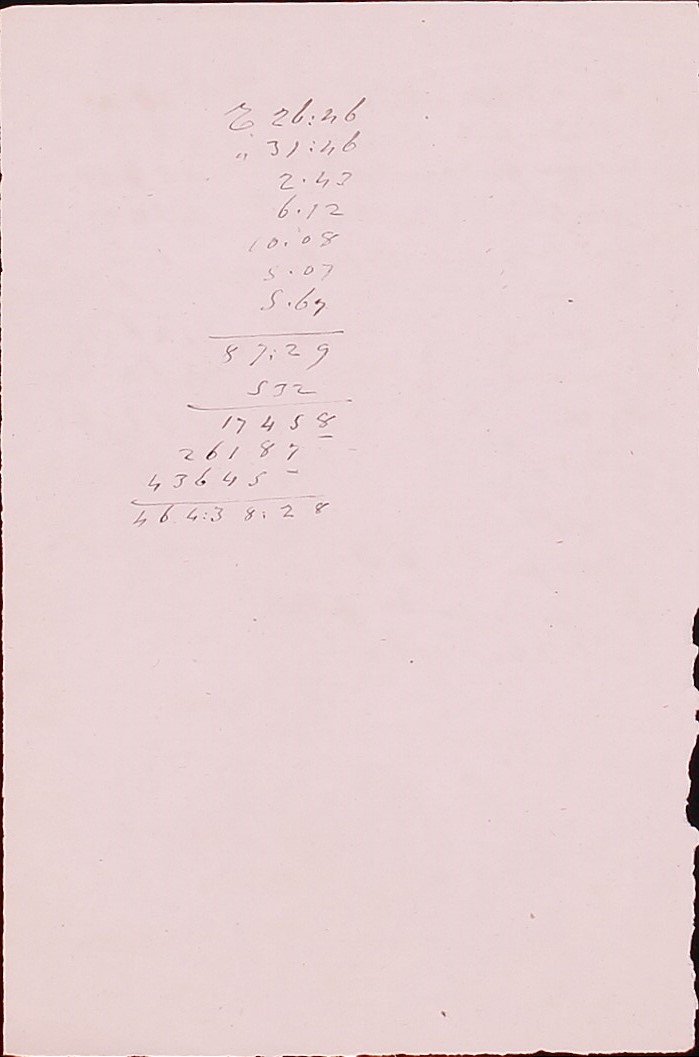 26:46
" 31:46
2.43
6.12
10.08
5.07
5.67
87:29
532
17458
26187
43645
464:38:28